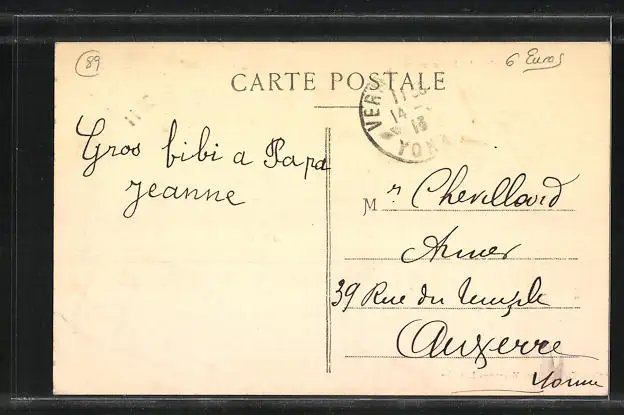 89
6 Euros
CARTE POSTALE
VER
11
14
18
YONNE
Gros bibi a Papa
Jeanne
Mr Chevilland
39 Rue du Temple
Auxerre
Yonne